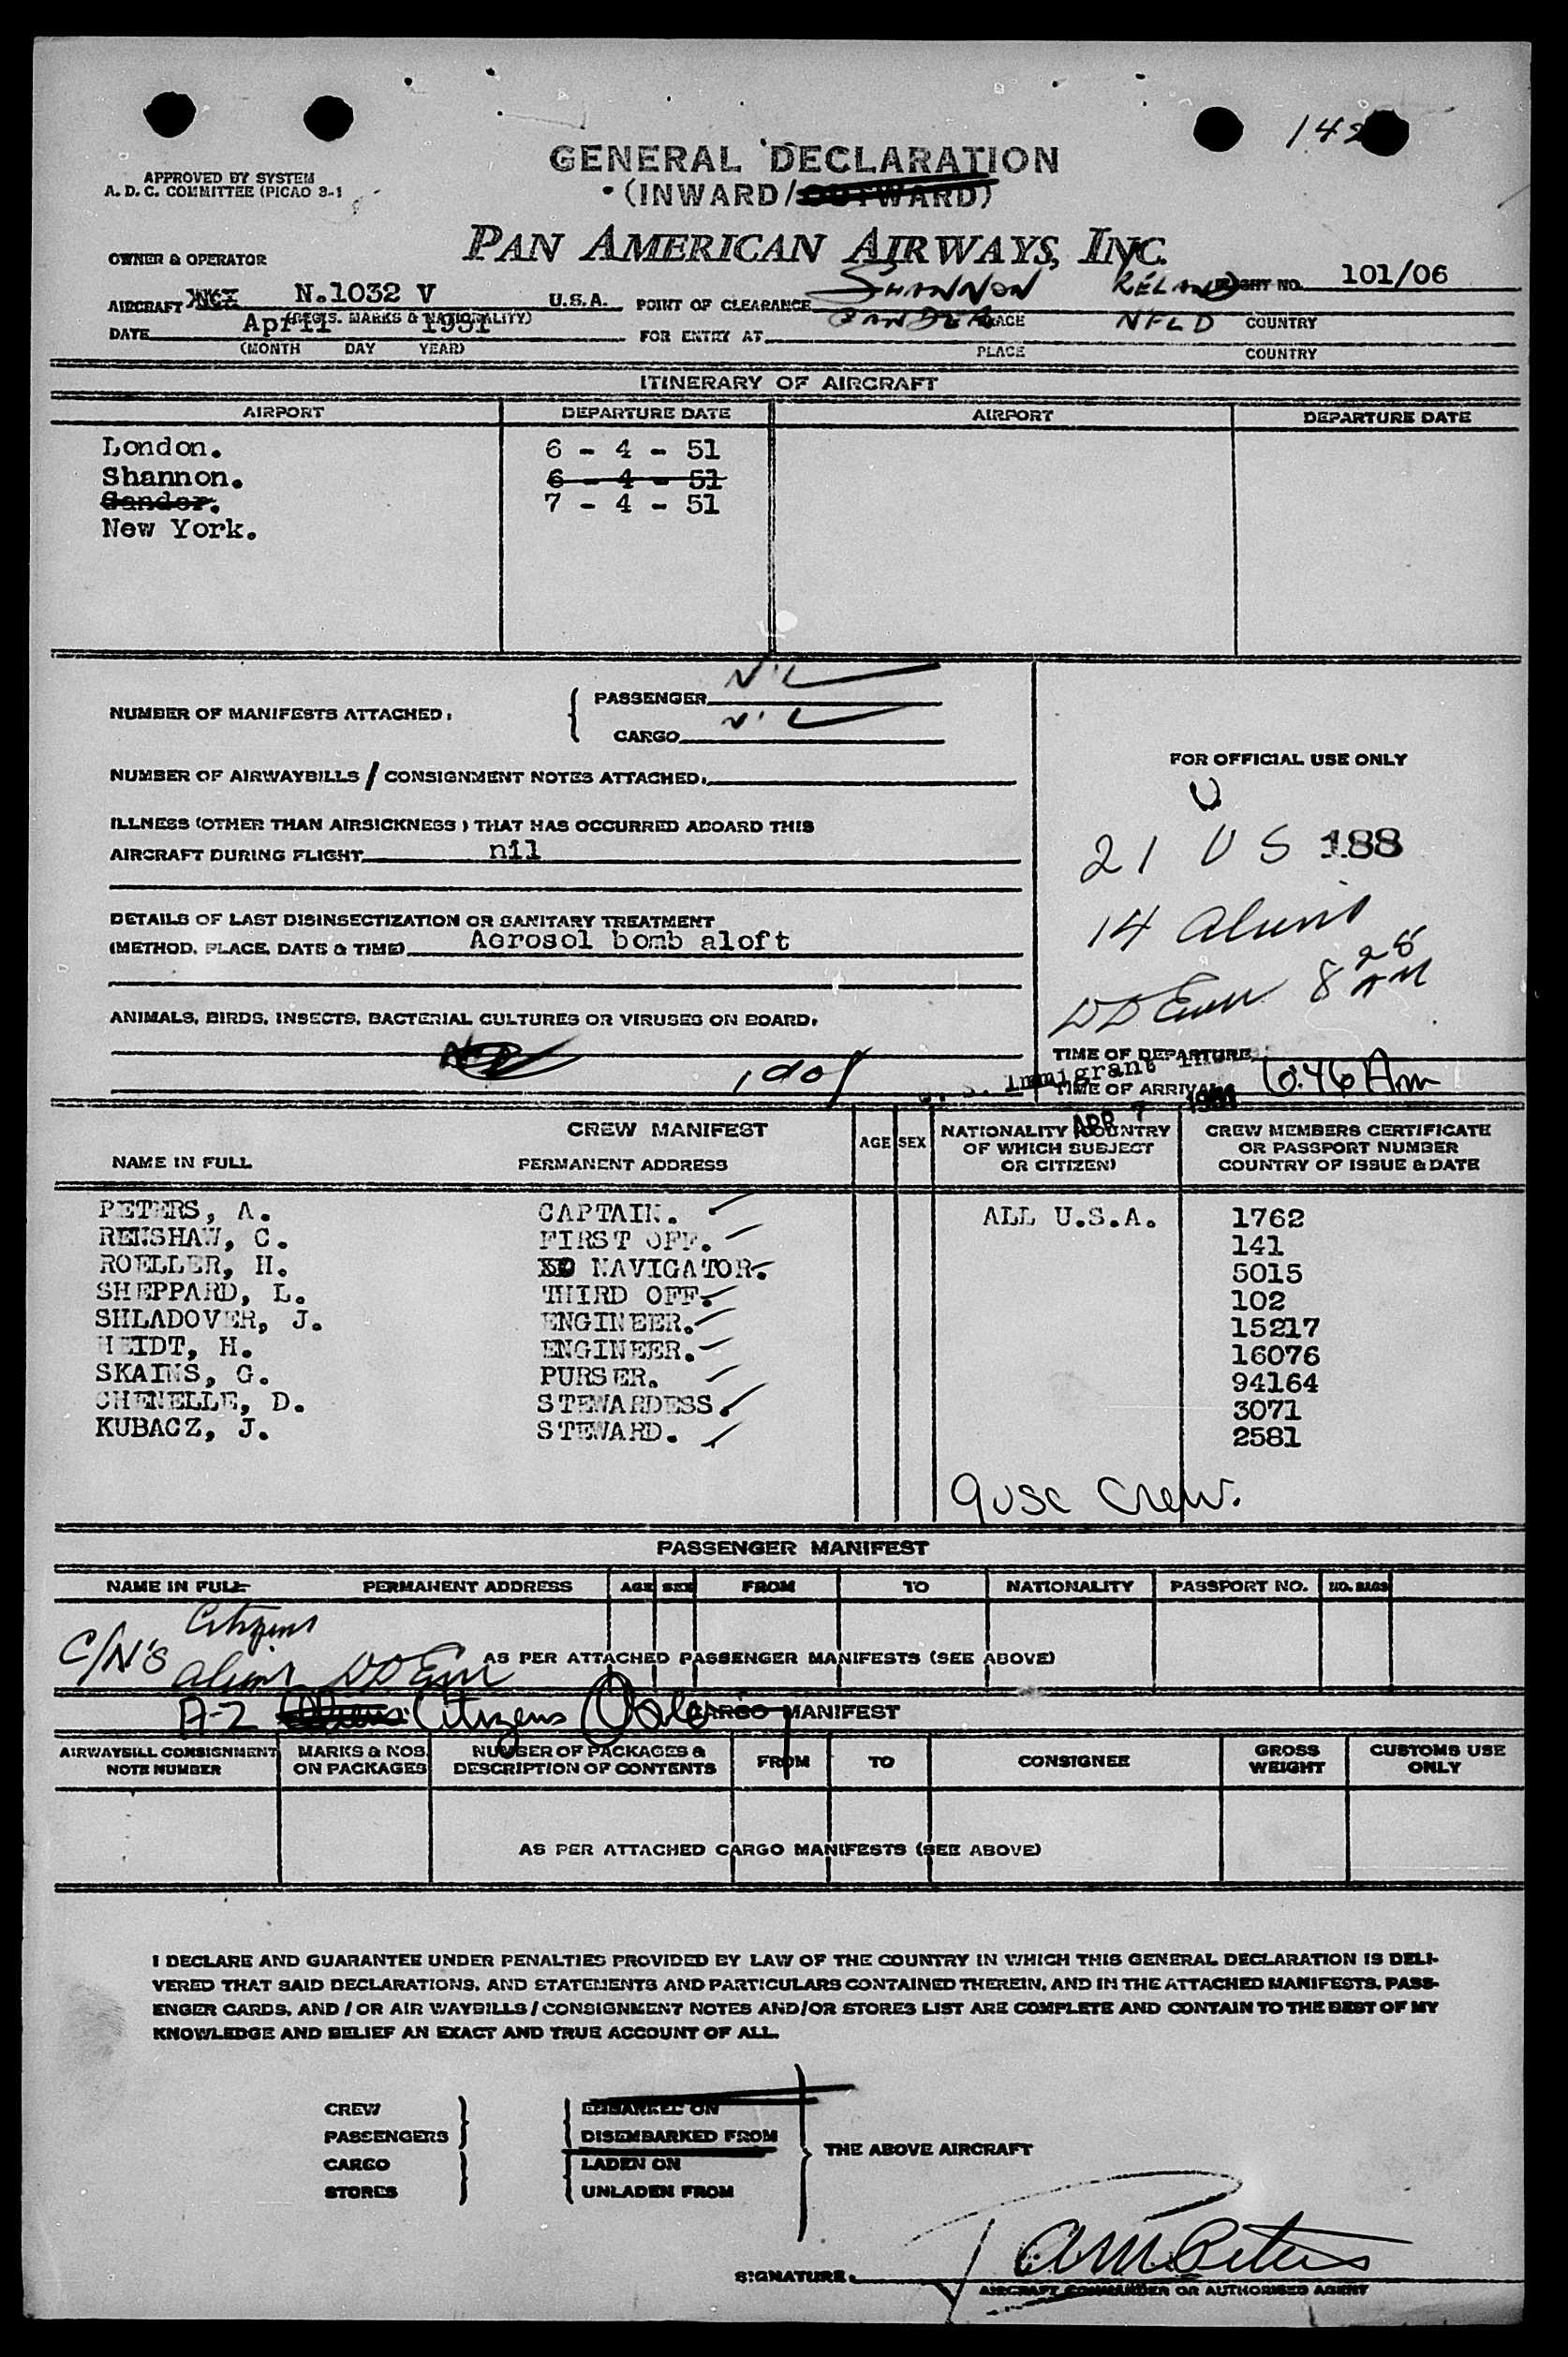 142
GENERAL DECLARATION
(INWARD/OUTWARD)
APPROVED BY SYSTEM
A. D. C. COMMITTEE (PICAO 3-1
PAN AMERICAN AIRWAYS, INC.
OWNER & OPERATOR
AIRCRAFT N.1032 V U.S.A. POINT OF CLEARANCE SHANNON IRELAND FLIGHT NO. 101/06
(REGIS. MARKS & NATIONALITY) PLACE COUNTRY
DATE April 1951 FOR ENTRY AT GANDER NFLD
(MONTH DAY YEAR) PLACE COUNTRY
ITINERARY OF AIRCRAFT
AIRPORT DEPARTURE DATE AIRPORT DEPARTURE DATE
London. 6 - 4 - 51
Shannon. 6 - 4 - 51
Gander. 7 - 4 - 51
New York.
NUMBER OF MANIFESTS ATTACHED: PASSENGER NIL
CARGO NIL
FOR OFFICIAL USE ONLY
NUMBER OF AIRWAYBILLS / CONSIGNMENT NOTES ATTACHED:
ILLNESS (OTHER THAN AIRSICKNESS) THAT HAS OCCURRED ABOARD THIS
AIRCRAFT DURING FLIGHT nil
21 US 188
DETAILS OF LAST DISINSECTIZATION OR SANITARY TREATMENT
(METHOD, PLACE, DATE & TIME) Aerosol bomb aloft
14 aliens
8 25 AM
ANIMALS, BIRDS, INSECTS, BACTERIAL CULTURES OR VIRUSES ON BOARD:
TIME OF DEPARTURE
TIME OF ARRIVAL 6:46 Am
U. S. Immigrant
APR 7 1951
CREW MANIFEST
NAME IN FULL PERMANENT ADDRESS AGE SEX NATIONALITY (COUNTRY OF WHICH SUBJECT OR CITIZEN) CREW MEMBERS CERTIFICATE OR PASSPORT NUMBER COUNTRY OF ISSUE & DATE
PETERS, A. CAPTAIN. ALL U.S.A. 1762
RENSHAW, C. FIRST OFF. 141
ROELLER, H. NAVIGATOR. 5015
SHEPPARD, L. THIRD OFF. 102
SHLADOVER, J. ENGINEER. 15217
HEIDT, H. ENGINEER. 16076
SKAINS, G. PURSER. 94164
CHENELLE, D. STEWARDESS. 3071
KUBACZ, J. STEWARD. 2581
9 USC Crew.
PASSENGER MANIFEST
NAME IN FULL PERMANENT ADDRESS AGE SEX FROM TO NATIONALITY PASSPORT NO. NO. BAGS
C/N's Citizens
aliens
AS PER ATTACHED PASSENGER MANIFESTS (SEE ABOVE)
A-2 Citizens
CARGO MANIFEST
AIRWAYBILL CONSIGNMENT NOTE NUMBER MARKS & NOS. ON PACKAGES NUMBER OF PACKAGES & DESCRIPTION OF CONTENTS FROM TO CONSIGNEE GROSS WEIGHT CUSTOMS USE ONLY
AS PER ATTACHED CARGO MANIFESTS (SEE ABOVE)
I DECLARE AND GUARANTEE UNDER PENALTIES PROVIDED BY LAW OF THE COUNTRY IN WHICH THIS GENERAL DECLARATION IS DELI-
VERED THAT SAID DECLARATIONS, AND STATEMENTS AND PARTICULARS CONTAINED THEREIN, AND IN THE ATTACHED MANIFESTS, PASS-
ENGER CARDS, AND / OR AIR WAYBILLS / CONSIGNMENT NOTES AND/OR STORES LIST ARE COMPLETE AND CONTAIN TO THE BEST OF MY
KNOWLEDGE AND BELIEF AN EXACT AND TRUE ACCOUNT OF ALL.
CREW EMBARKED ON
PASSENGERS DISEMBARKED FROM
THE ABOVE AIRCRAFT
CARGO LADEN ON
STORES UNLADEN FROM
SIGNATURE. AM Peters
AIRCRAFT COMMANDER OR AUTHORISED AGENT